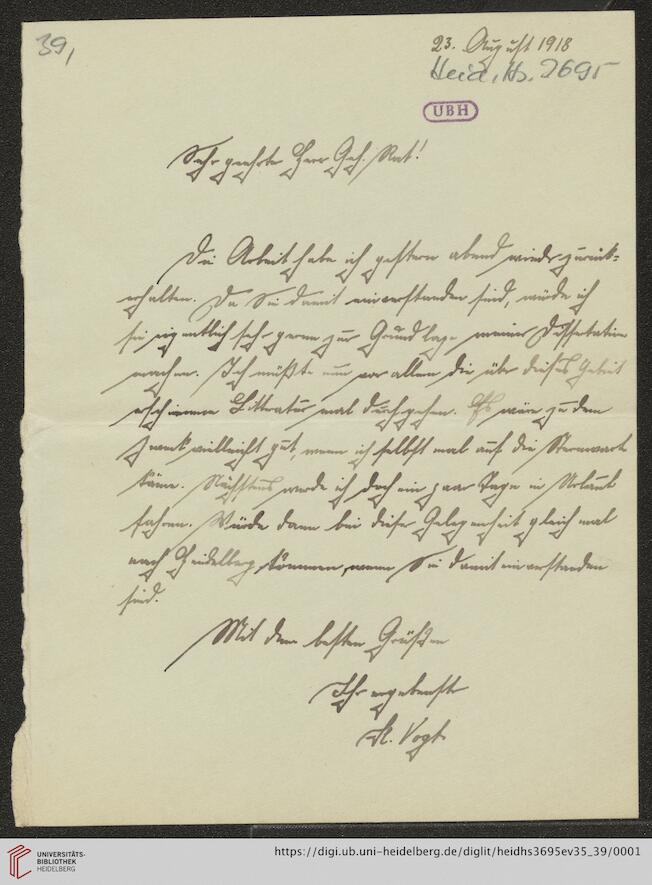 39,
23. August 1918
Heid. Hs. 3695
UBH
Sehr geehrter Herr Geh. Rat!
Die Arbeit habe ich gestern abend wieder zurück-
erhalten. Da Sie damit einverstanden sind, würde ich
sie eigentlich sehr gerne zur Grundlage meiner Dissertation
machen. Ich müßte nun vor allem die über dieses Gebiet
erschienene Litteratur mal durchgehen. Es wäre zu dem
Zweck vielleicht gut, wenn ich selbst mal auf die Sternwarte
käme. Nächstens werde ich doch ein paar Tage in Urlaub
fahren. Würde dann bei dieser Gelegenheit gleich mal
nach Heidelberg kommen, wenn Sie damit einverstanden
sind.
Mit den besten Grüßen
Ihr ergebenster
H. Vogt.
UNIVERSITÄTS-
BIBLIOTHEK
HEIDELBERG
https://digi.ub.uni-heidelberg.de/diglit/heidhs3695ev35_39/0001